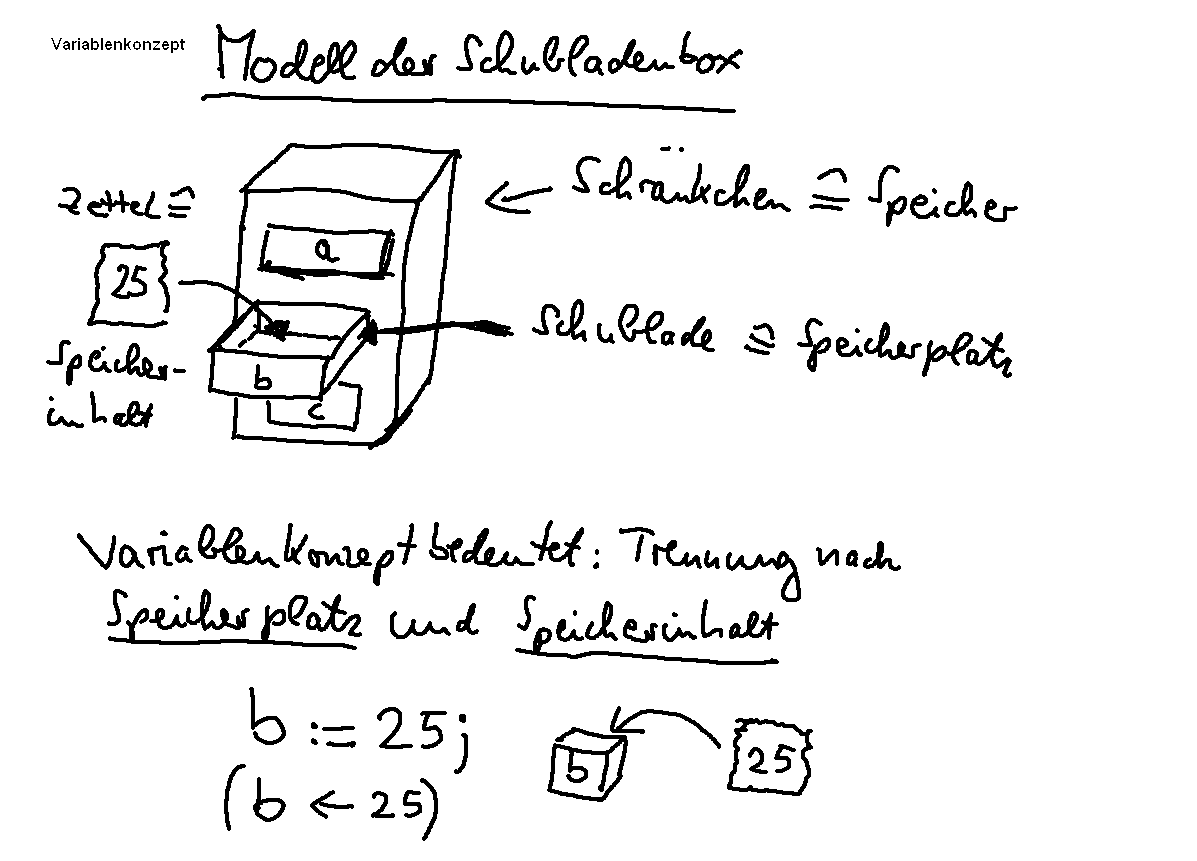 Variablenkonzept
Modell der Schubladenbox
Zettel ≙
25
Speicher-
inhalt
a
b
c
Schränkchen ≙ Speicher
Schublade ≙ Speicherplatz
Variablenkonzept bedeutet: Trennung nach
Speicherplatz und Speicherinhalt
b := 25;
(b ← 25)
b
25